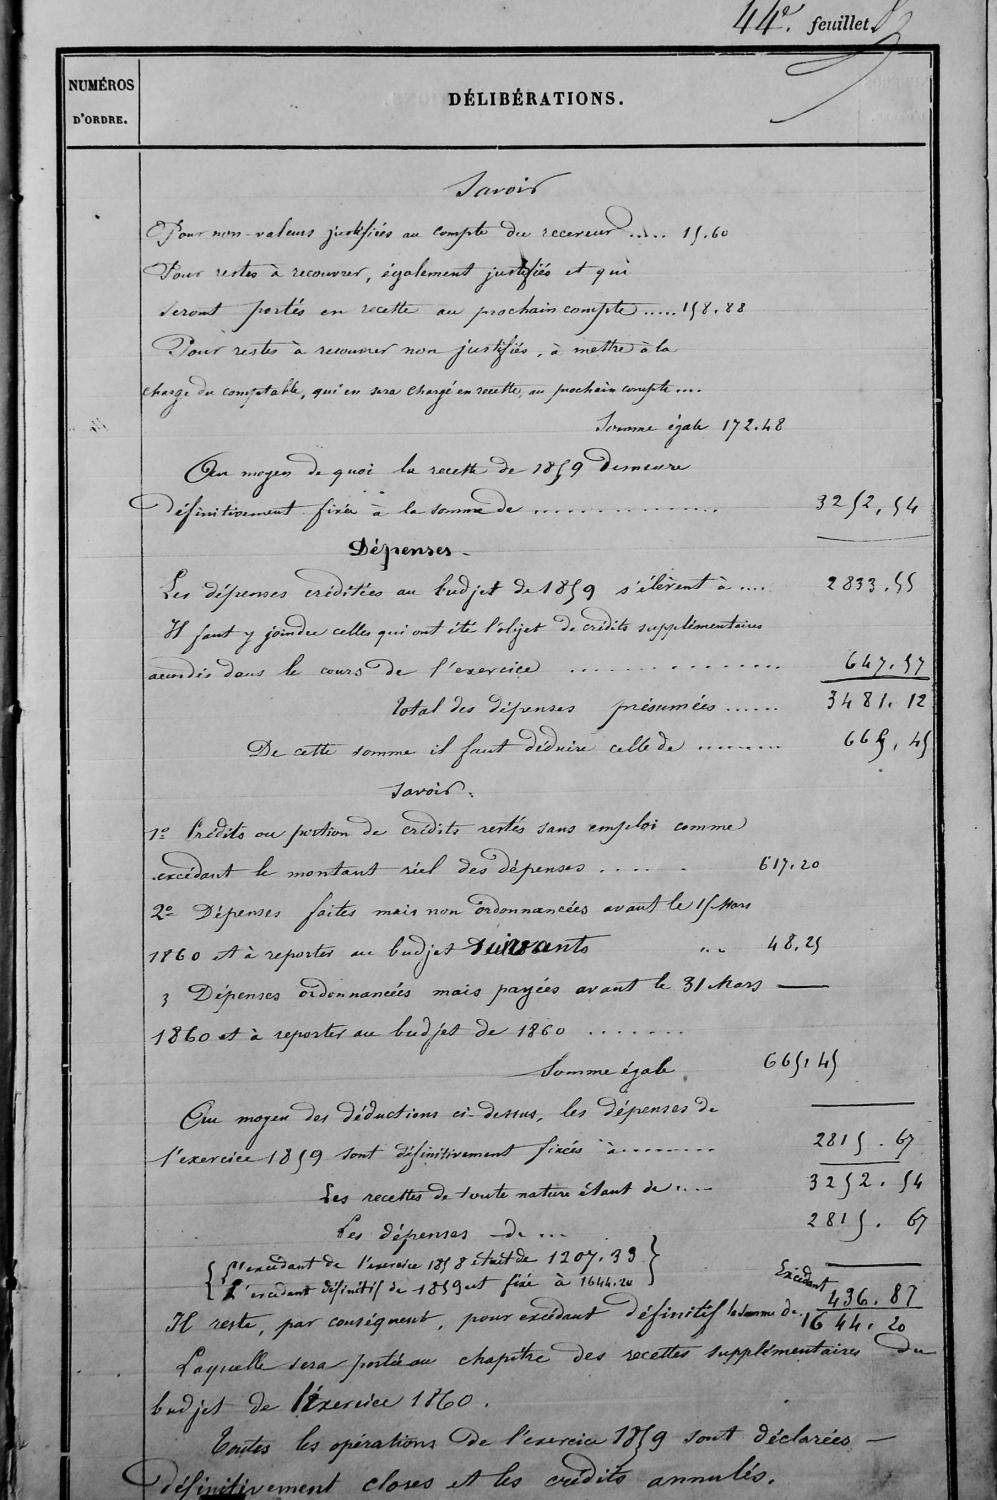 44e. feuillet.
NUMÉROS
D'ORDRE.
DÉLIBÉRATIONS.
Savoir
Pour non-valeurs justifiées au compte du receveur ..... 15.60
Pour restes à recouvrer, également justifiés et qui
seront portés en recette au prochain compte ..... 158.88
Pour restes à recouvrer non justifiés, à mettre à la
charge du comptable, qui en sera chargé en recette, au prochain compte ....
Somme égale 172.48
Au moyen de quoi la recette de 1859 demeure
définitivement fixée à la somme de ............... 3252,54
Dépenses -
Les dépenses créditées au budjet de 1859 s'élèvent à .... 2833.55
Il faut y joindre celles qui ont été l'objet de crédits supplémentaires
accordés dans le cours de l'exercice ............... 647.57
Total des dépenses présumées ...... 3481.12
De cette somme il faut déduire celle de ........ 665,45
Savoir.
1º Crédits ou portion de crédits restés sans emploi comme
excédant le montant réel des dépenses ...... 617.20
2º Dépenses faites mais non ordonnancées avant le 15 Mars
1860 et à reporter au budjet suivants .. 48.25
3 Dépenses ordonnancées mais payées avant le 31 Mars —
1860 et à reporter au budjet de 1860 .......
Somme égale 665,45
Au moyen des déductions ci-dessus, les dépenses de
l'exercice 1859 sont définitivement fixées à ........ 2815.67
Les recettes de toute nature étant de .... 3252.54
Les dépenses de ... 2815.67
L'excédant de l'exercice 1858 était de 1207.33
L'excédant définitif de 1859 est fixé à 1644.20
Excédant 436.87
Il reste, par conséquent, pour excédant définitif la somme de. 1644.20
Laquelle sera portée au chapitre des recettes supplémentaires du
budjet de l'Exercice 1860.
Toutes les opérations de l'exercice 1859 sont déclarées —
définitivement closes et les crédits annulés.